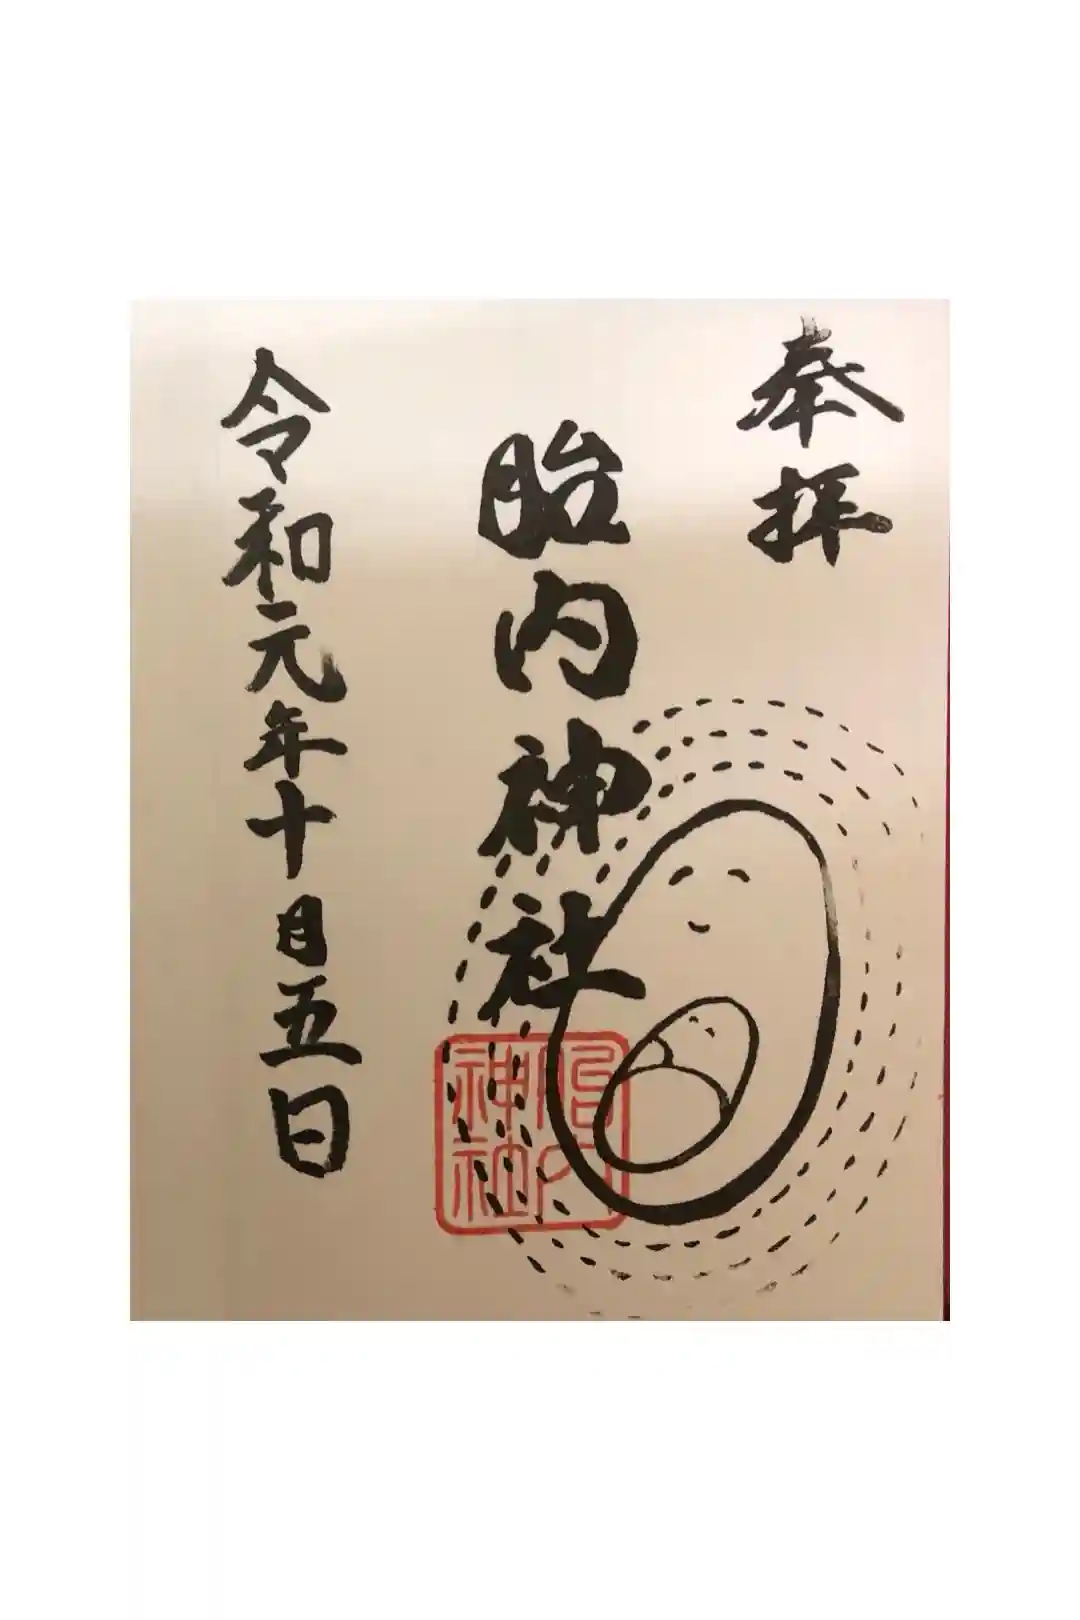 奉拝
胎内神社
令和元年十月五日
胎内
神社